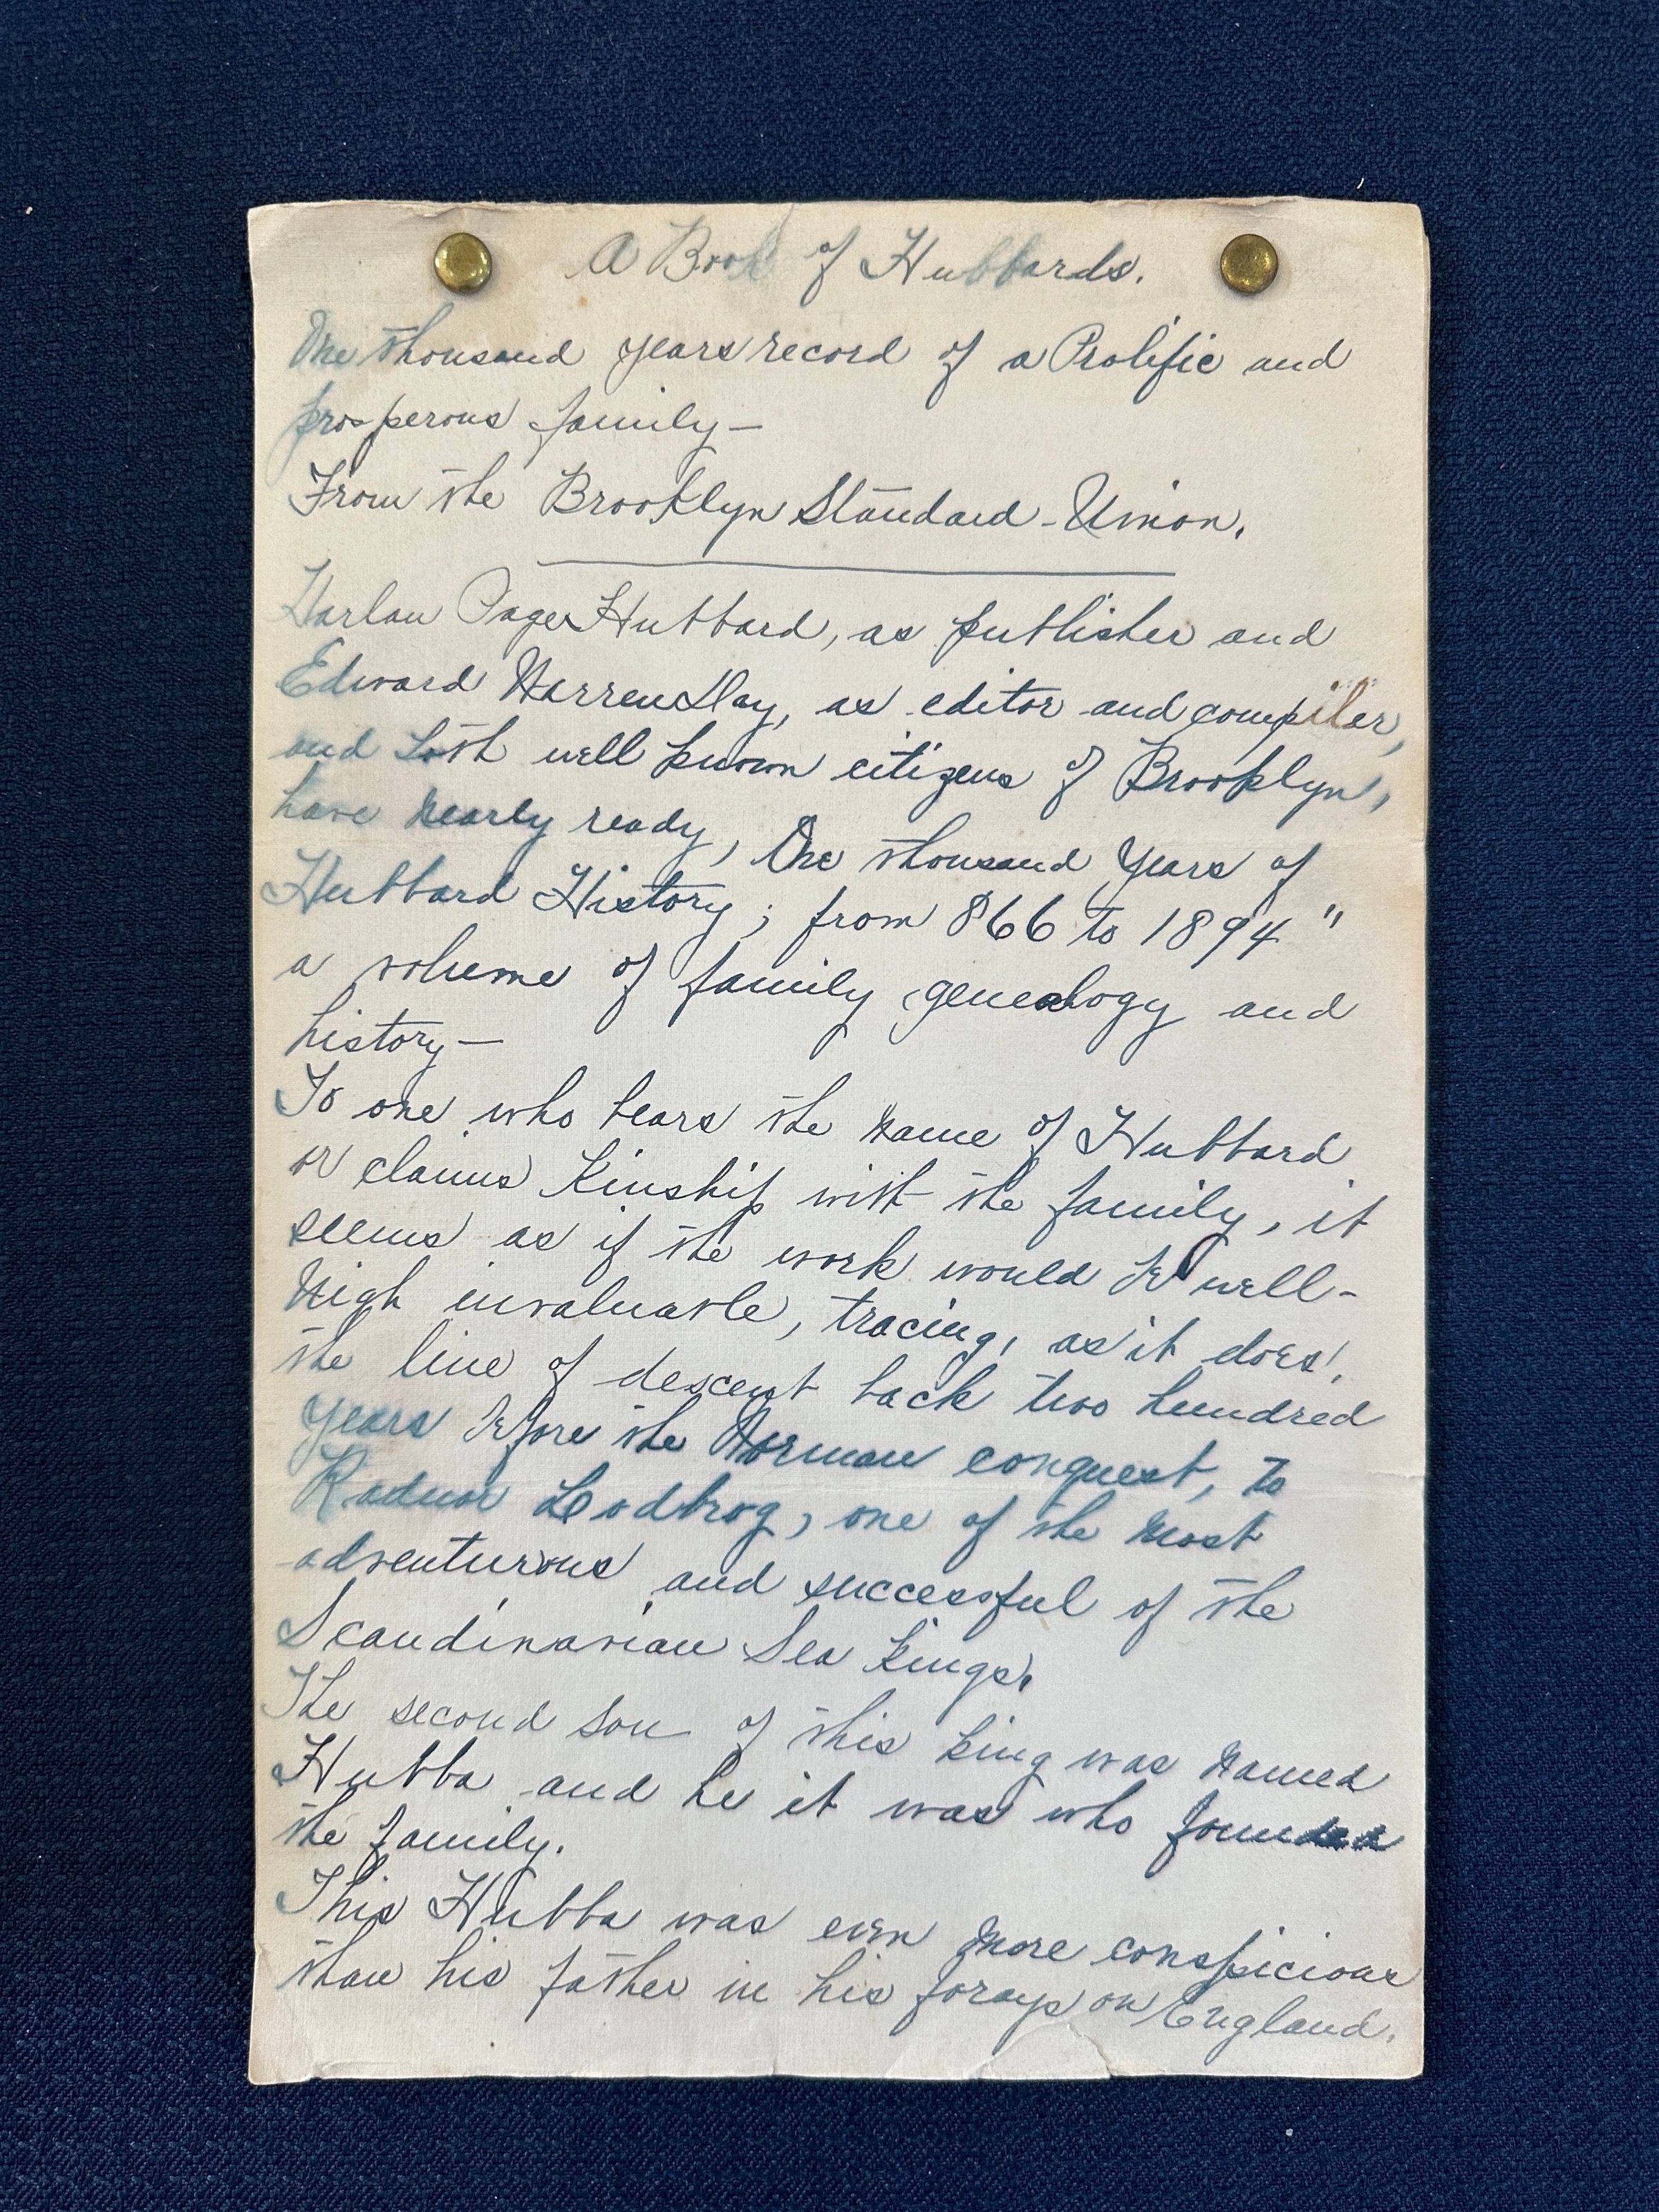 A Book of Hubbards.
One thousand years record of a Prolific and
prosperous family—
From the Brooklyn Standard-Union.
Harlan Page Hubbard, as publisher and
Edward Warren Day, as editor and compiler,
and both well known citizens of Brooklyn,
have nearly ready, One thousand Years of
Hubbard History; from 866 to 1894"
a volume of family genealogy and
history—
To one who bears the name of Hubbard
or claims Kinship with the family, it
seems as if the work would be well-
nigh invaluable, tracing, as it does,
the line of descent back two hundred
years before the Norman conquest, to
Radnor Lodbrog, one of the most
adventurous and successful of the
Scandinavian Sea Kings.
The second son of this king was named
Hubba and he it was who founded
the family.
This Hubba was even more conspicious
than his father in his forays on England.